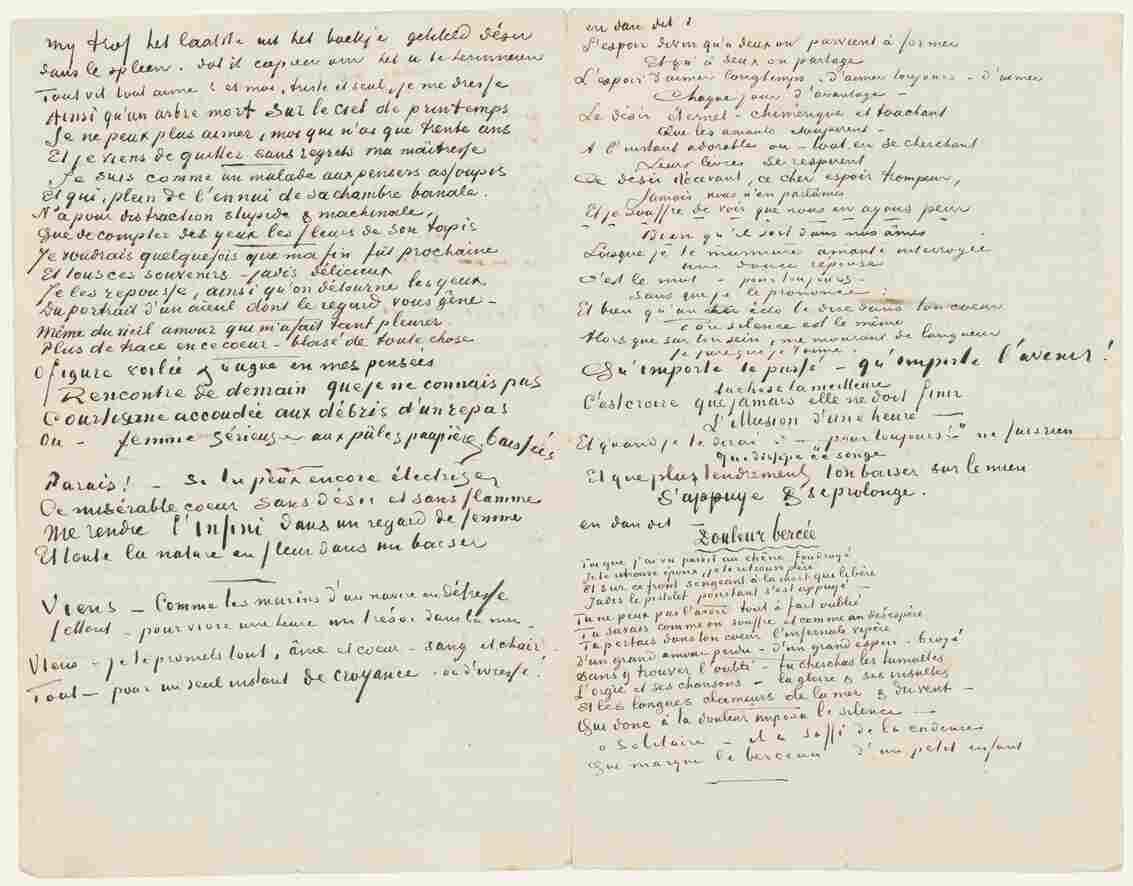 my trof het laatste uit het boekje getiteld Désir
dans le spleen. dat ik capeer om het u te herinneren
Tout vit tout aime! et moi, triste et seul, je me dresse
Ainsi qu'un arbre mort sur le ciel de printemps
Je ne peux plus aimer, moi qui n'ai que trente ans
Et je viens de quitter sans regrets ma maîtresse
Je suis comme un malade aux pensers assoupis
Et qui, plein de l'ennui de sa chambre banale.
N'a pour distraction stupide & machinale,
Que de compter des yeux les fleurs de son tapis
Je voudrais quelquefois que ma fin fut prochaine
Et tous ces souvenirs – jadis délicieux
Je les repousse, ainsi qu'on détourne les yeux
Du portrait d'un aïeul dont le regard vous gêne –
Même du vieil amour qui m'a fait tant pleurer.
Plus de trace en ce coeur – blasé de toute chose
O figure voilée & vague en mes pensées
Rencontre de demain que je ne connais pas
Courtisane accoudée aux débris d'un repas
Ou – femme sérieuse aux pâles paupières baissées
Parais! – Si tu peux encore électriser
Ce misérable coeur sans désir et sans flamme
Me rendre l'Infini dans un regard de femme
Et toute la nature en fleur dans un baiser
Viens – Comme les marins d'un navire en détresse
jettent – pour vivre une heure un trésor dans la mer –
Viens – je te promets tout, âme et coeur – sang et chair
Tout – pour un seul instant de croyance – ou d'ivresse!
en dan dit !
L'espoir divin qu'à deux on parvient à former
Et qu'à deux on partage
L'espoir d'aimer longtemps, d'aimer toujours – d'aimer
Chaque jour d'avantage –
Le désir éternel – chimérique et touchant
Que les amants soupirent –
A l'instant adorable où – tout en se cherchant
Leurs lèvres se respirent
Ce désir décevant, ce cher espoir trompeur,
Jamais nous n'en parlâmes
Et je souffre de voir que nous en ayons peur
Bien qu'il soit dans nos âmes
Lorsque je te murmure amante interrogée
une douce reponse
C'est le mot – pour toujours –
Sans que je le prononce!
Et bien qu'un cher écho le dise dans ton coeur
Ton silence est le même
Alors que sur ton sein, me mourant de langueur
Je jure que je t'aime.
Qu'importe le passé – qu'importe l'avenir!
La chose la meilleure
C'est croire que jamais elle ne doit finir
L'illusion d'une heure –
Et quand je te dirai :– pour toujours!" ne fais rien
Qui dissipe ce songe
Et que plus tendrement ton baiser sur le mien
S'appuye & se prolonge.
en dan dit
Douleur bercée
Toi que j'ai vu pareil au chêne foudroyé
Je te retrouve époux, je te retrouve père
Et sur ce front songeant à la mort qui libère
Jadis le pistolet pourtant s'est appuyé –
Tu ne peux pas l'avoir tout à fait oublié
Tu savais comme on souffre et comme on désespère
Tu portais dans ton coeur l'infernale vipère
D'un grand amour perdu – d'un grand espoir – broyé
Sans y trouver l'oubli – tu cherchas les tumultes
L'orgie et ses chansons – la gloire & ses insultes
Et les longues clameurs de la mer & du vent –
Que donc à ta douleur imposa le silence
o Solitaire – il a suffi de la cadence
Que marque le berceau d'un petit enfant